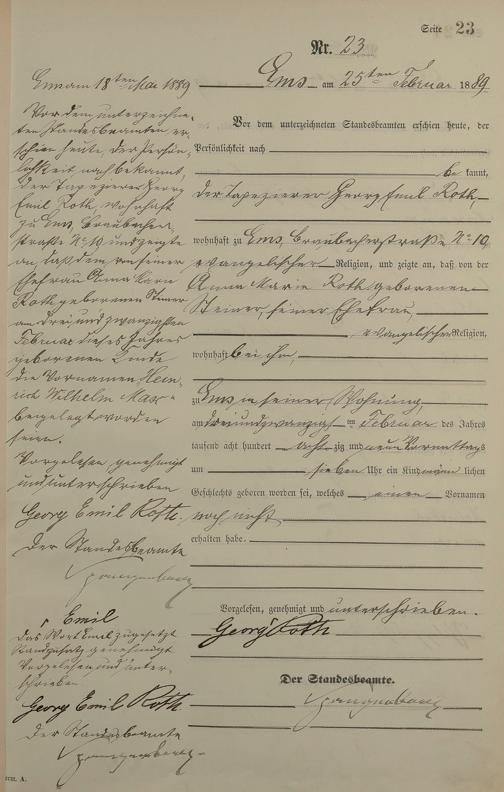 Seite 23
Nr. 23
Ems am 25ten Februar 1889
Vor dem unterzeichneten Standesbeamten erschien heute, der
Persönlichkeit nach
be kannt,
der Tapezierer Georg Emil Roth,
wohnhaft zu Ems, Braubacherstraße No 10,
evangelischer Religion, und zeigte an, daß von der
Anna Marie Roth geborenen
Steiner, seiner Ehefrau,
evangelischer Religion,
wohnhaft bei ihm,
zu Ems in seiner Wohnung,
am dreiundzwanzigsten Februar des Jahres
tausend acht hundert achtzig und neun Vormittags
um sieben Uhr ein Kind männlichen
Geschlechts geboren worden sei, welches einen Vornamen
noch nicht
erhalten habe.
Vorgelesen, genehmigt und unterschrieben.
Georg Roth
Der Standesbeamte.
Spangenberg
Ems am 18ten Mai 1889
Vor dem unterzeichne-
ten Standesbeamten er-
schien heute, der Persön-
lichkeit nach bekannt,
der Tapezierer Georg
Emil Roth, wohnhaft
zu Ems, Braubacher-
straße No 10 und zeigte
an, daß dem von seiner
Ehefrau Anna Marie
Roth geborenen Steiner
am drei und zwanzigsten
Februar dieses Jahres
geborenen Kinde
die Vornamen Hein-
rich Wilhelm Max
beigelegt worden
seien.
Vorgelesen, genehmigt
und unterschrieben
Georg Emil Roth.
Der Standesbeamte
Spangenberg
Emil
Das Wort Emil zugesetzt
Randzusatz genehmigt
Vorgelesen, und unter-
schrieben
Georg Emil Roth
Der Standesbeamte
Spangenberg